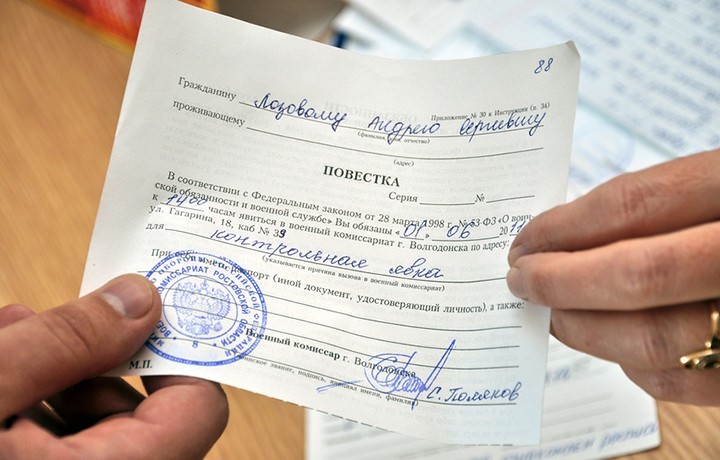 88
Приложение № 30 к Инструкции (п. 34)
Гражданину Лозовому Андрею Сергеевичу
(фамилия, имя, отчество)
проживающему
(адрес)
ПОВЕСТКА
Серия № 
В соответствии с Федеральным законом от 28 марта 1998 г. № 53-ФЗ «О воин-
ской обязанности и военной службе» Вы обязаны «01» 06 201
к 1400 часам явиться в военный комиссариат г. Волгодонска по адресу:
ул. Гагарина, 18, каб № 39
для контрольная явка
(указывается причина вызова в военный комиссариат)
При себе иметь паспорт (иной документ, удостоверяющий личность), а также:
Военный комиссар г. Волгодонска
С. Поляков
воинское звание, подпись, инициал имени, фамилия)
М.П.
КОМИССАРИАТ РОСТОВСКОЙ ОБЛАСТИ
8